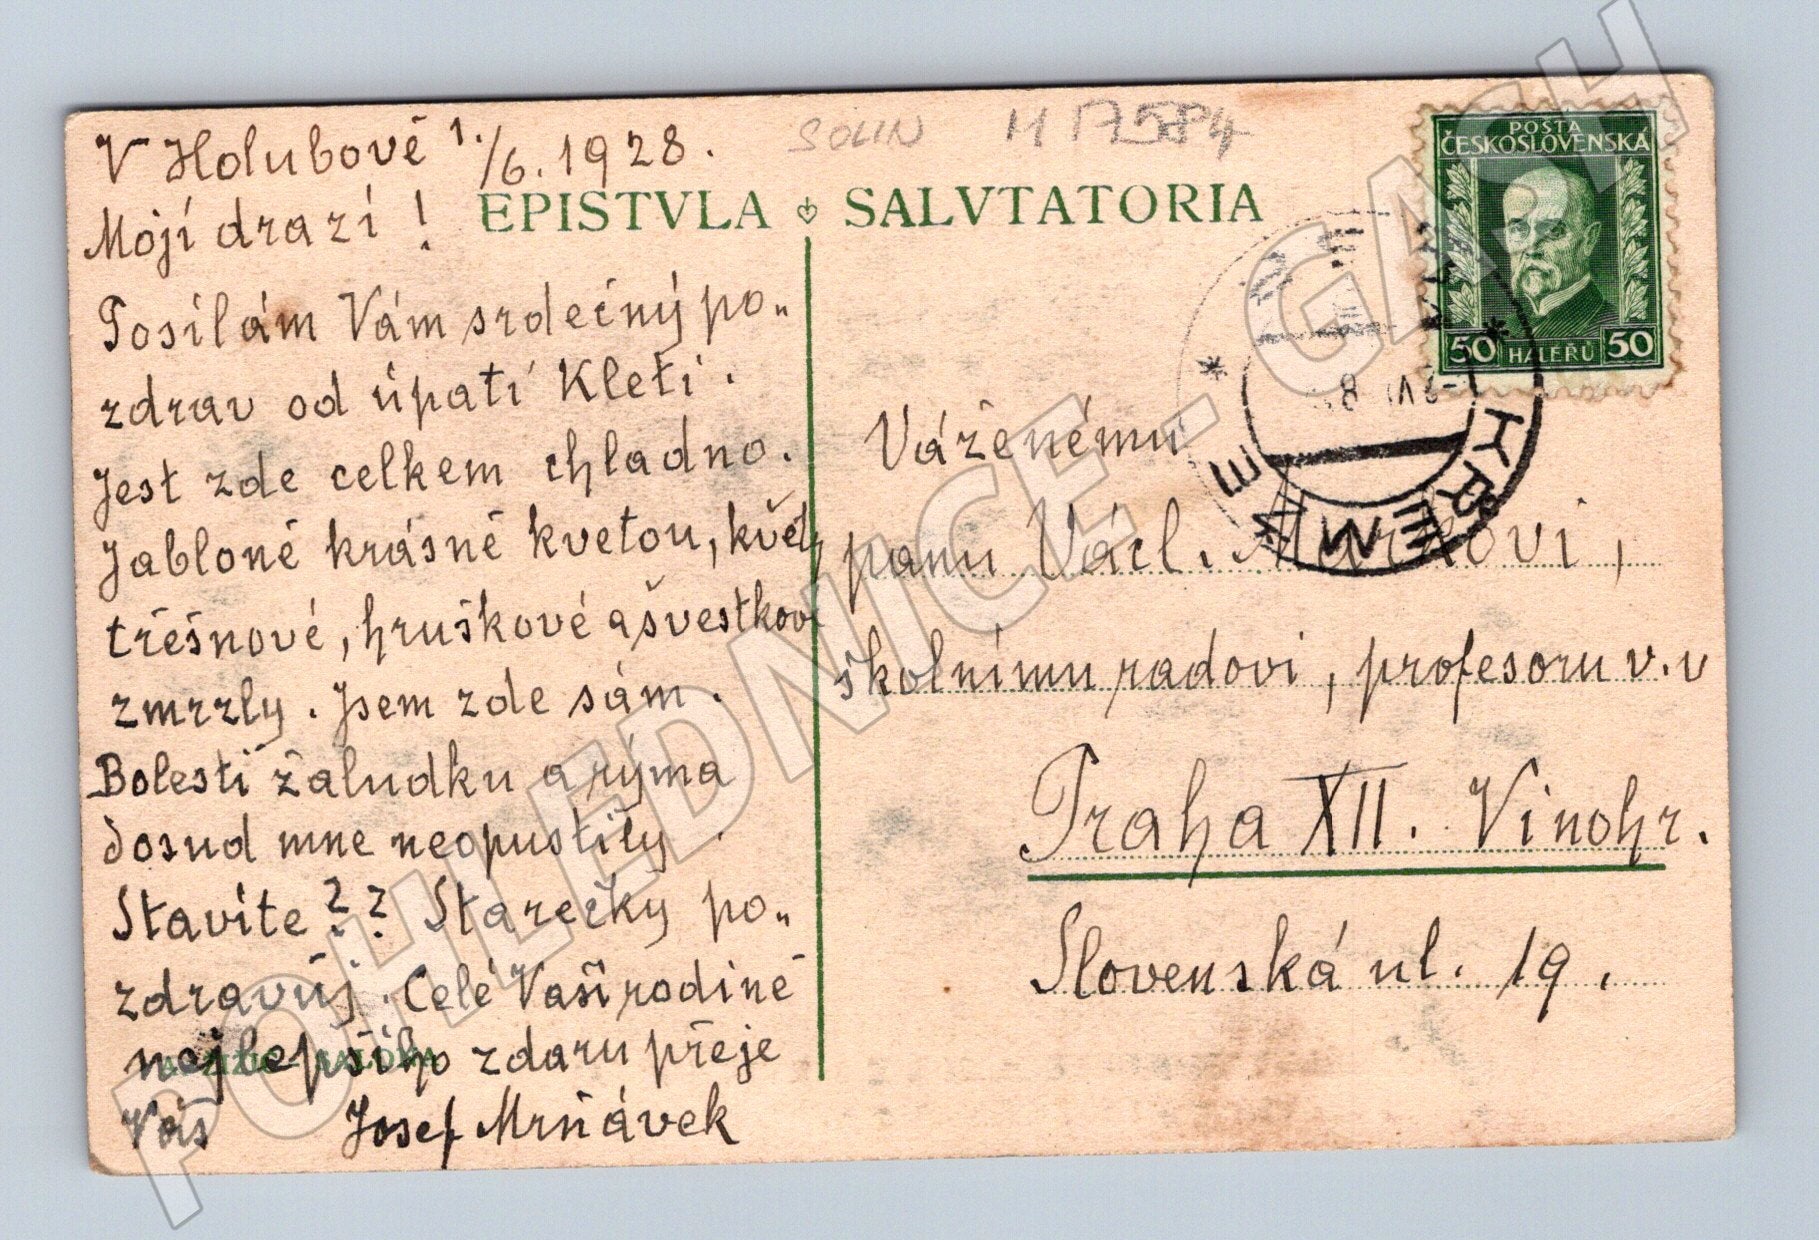 V Holubově 1./6. 1928.
SOLIN H 17584
EPISTVLA SALVTATORIA
Mojí drazí!
Posílám Vám srdečný po„
zdrav od úpatí Kleti.
Jest zde celkem chladno.
Jabloně krásně kvetou, květy
třešňové, hruškové a švestkov
zmrzly. Jsem zde sám.
Bolesti žaludku a rýma
dosud mne neopustily.
Stavíte?? Starečky po„
zdravůj. Celé Vaší rodině
nejlepšího zdaru přeje
Váš Josef Mrňávek
POŠTA
ČESKOSLOVENSKÁ
50 HALÉŘŮ 50
KŘEMŽE
Váženému
panu Václ. Markovi,
školnímu radovi, profesoru v. v
Praha XII. Vinohr.
Slovenská ul. 19.
POHLEDNICE.GASH